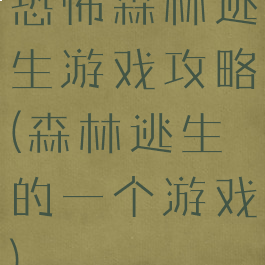 恐怖森林逃
生游戏攻略
(森林逃生
的一个游戏
)